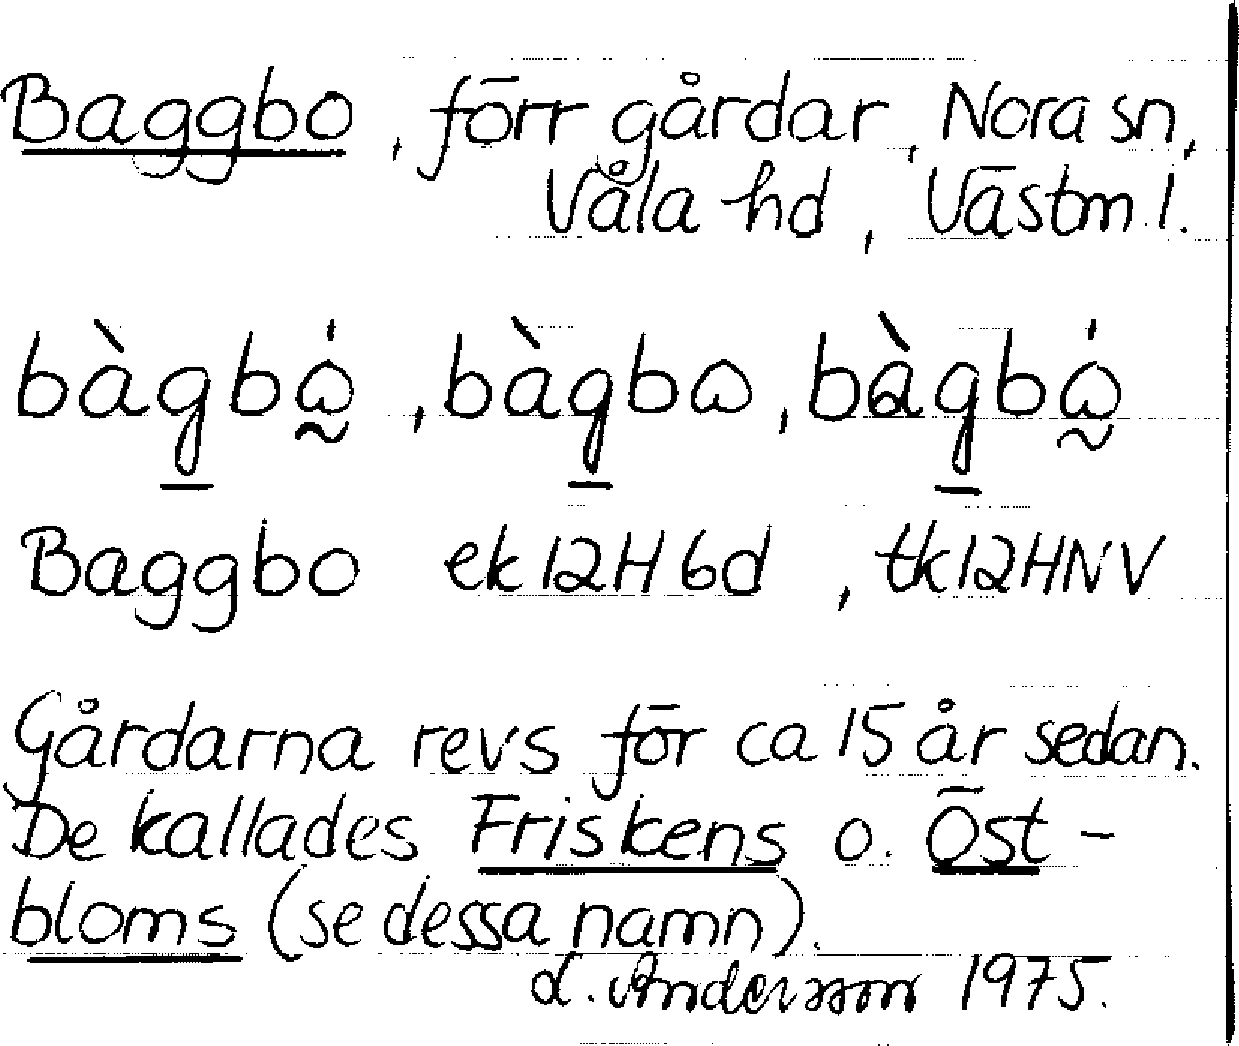 Baggbo, förr gårdar, Nora sn,
Våla hd, Västm l.
bàg̱bώ̰, bàg̱bω, bàg̱bώ̰
Baggbo ek 12H 6d, tk 12HNV
Gårdarna revs för ca 15 år sedan.
De kallades Friskens o. Öst-
bloms (se dessa namn).
L. Andersson 1975.